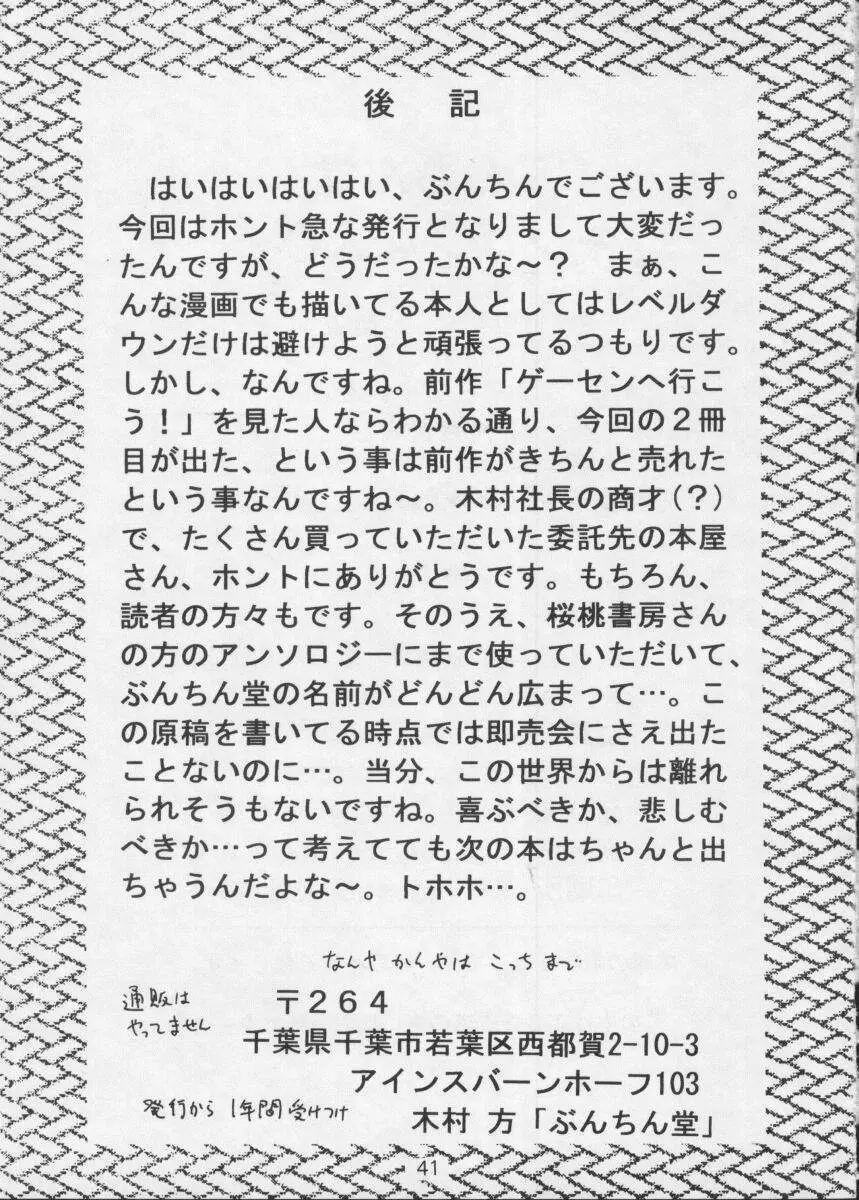 後　記
はいはいはいはい、ぶんちんでございます。
今回はホント急な発行となりまして大変だっ
たんですが、どうだったかな～？　まぁ、こ
んな漫画でも描いてる本人としてはレベルダ
ウンだけは避けようと頑張ってるつもりです。
しかし、なんですね。前作「ゲーセンへ行こ
う！」を見た人ならわかる通り、今回の２冊
目が出た、という事は前作がきちんと売れた
という事なんですね～。木村社長の商才(？)
で、たくさん買っていただいた委託先の本屋
さん、ホントにありがとうです。もちろん、
読者の方々もです。そのうえ、桜桃書房さん
の方のアンソロジーにまで使っていただいて、
ぶんちん堂の名前がどんどん広まって…。こ
の原稿を書いてる時点では即売会にさえ出た
ことないのに…。当分、この世界からは離れ
られそうもないですね。喜ぶべきか、悲しむ
べきか…って考えてても次の本はちゃんと出
ちゃうんだよな～。トホホ…。
なんやかんやは こっちまで
通販は
やってません
〒２６４
千葉県千葉市若葉区西都賀2-10-3
アインスバーンホーフ103
発行から 1年間受けつけ
木村 方「ぶんちん堂」
41